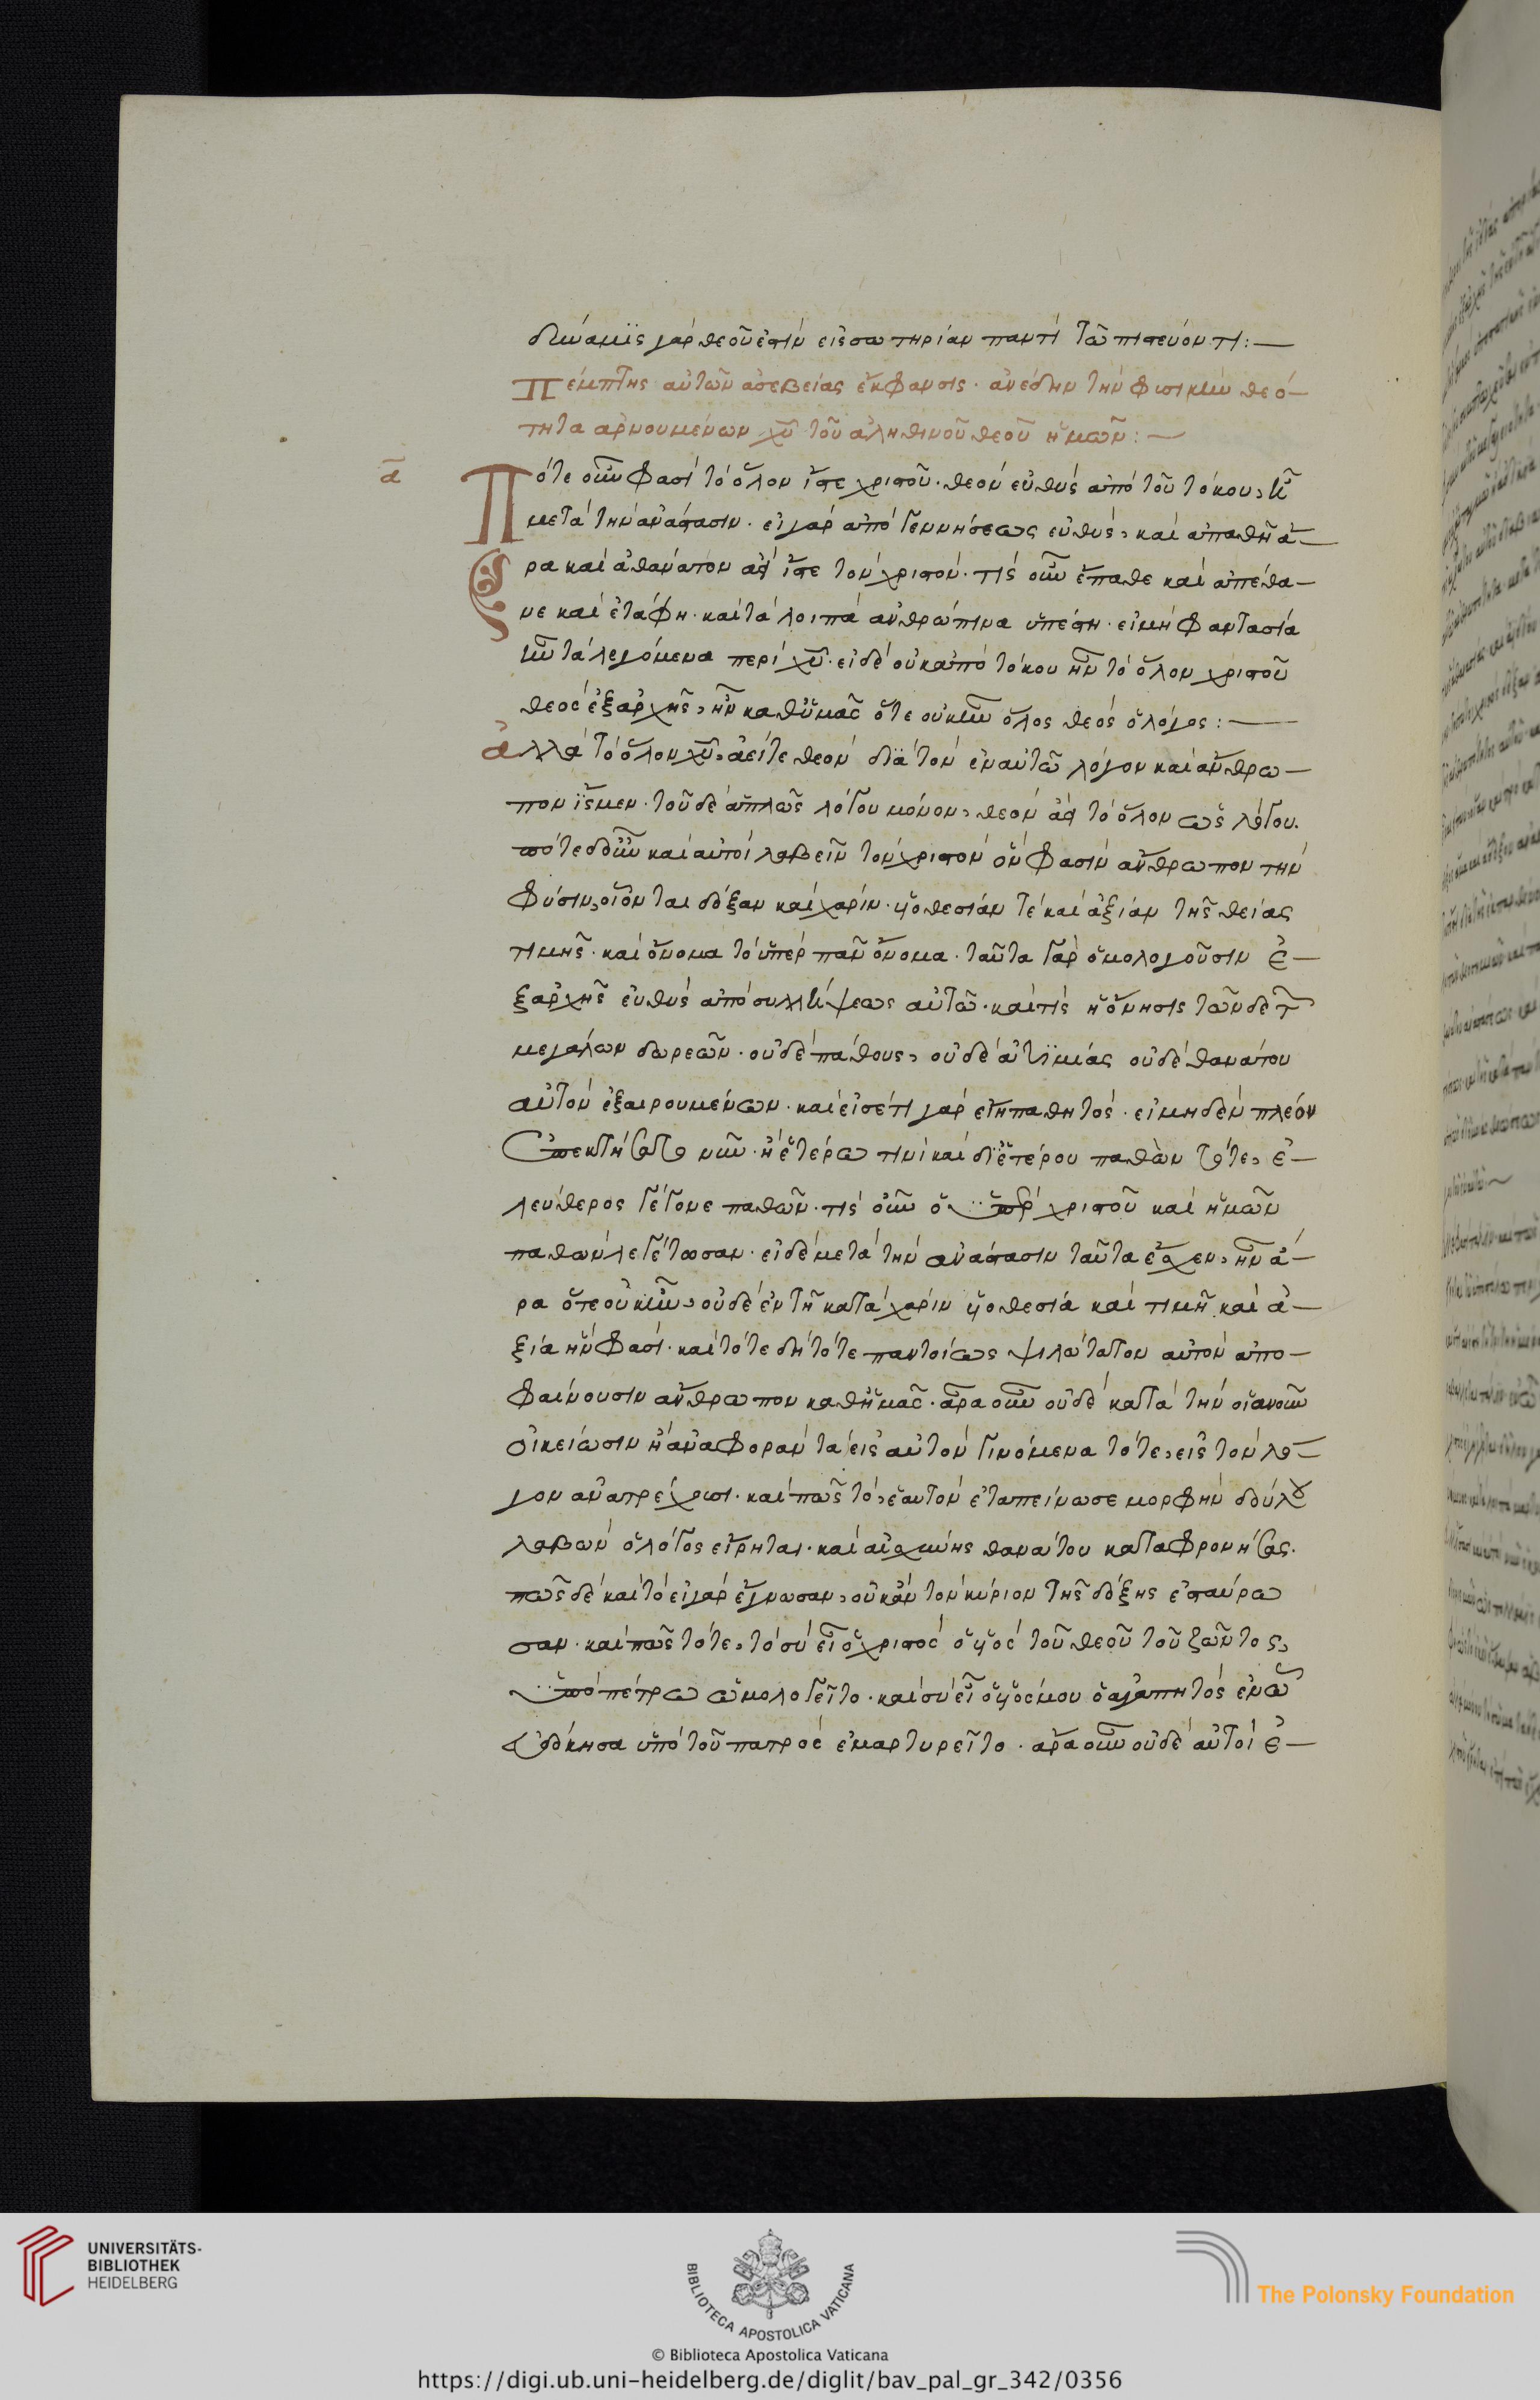 δύναμϊς γάρ θεοῦ ἐστίν εἰς σωτηρίαν παντί τῶ πιστεύοντι:—
Πέμπτης αὐτῶν ἀσεβείας ἔκφανσις· ἀνέδην τήν φυσικήν θεό—
τητα ἀρνουμένων χῦ τοῦ ἀληθινοῦ θεοῦ ἡμῶν:—
α
Πότε οὖν φασί τό ὅλον ἴστε χριστοῦ· θεόν εὐθύς ἀπό τοῦ τόκου, ἢ
μετά τήν ἀνάστασιν· εἰ γάρ ἀπό γεννήσεως εὐθύς, καί ἀπαθῆ ἄ—
ρα καί ἀθάνατον ἀεί ἴστε τόν χριστόν· τίς οὖν ἔπαθε καί ἀπέθα—
νε καί ἐτάφη· καί τά λοιπά ἀνθρώπινα ὑπέστη· εἰ μή φαντασία
ἦν τά λεγόμενα περί χῦ· εἰ δέ οὐκ ἀπό τόκου ἦν τό ὅλον χριστοῦ
θεός ἐξ ἀρχῆς, ἦν καθ' ὑμᾶς ὅτε οὐκ ἦν ὅλος θεός ὁ λόγος:—
ἀλλά τό ὅλον χῦ, ἀεί τε θεόν διά τόν ἐν αὐτῶ λόγον καί ἄνθρω—
πον ἴσμεν· τοῦ δέ ἁπλῶς λόγου μόνον, θεόν ἀεί τό ὅλον ὡς λόγου.
πότε δ' οὖν καί αὐτοί λαβεῖν τόν χριστόν ὅν φασίν ἄνθρωπον τήν
φύσιν, οἴονται δόξαν καί χάριν· υἱοθεσίαν τέ καί ἀξίαν τῆς θείας
τιμῆς· καί ὄνομα τό ὑπέρ πᾶν ὄνομα· ταῦτα γάρ ὁμολογοῦσιν ἐ—
ξαρχῆς εὐθύς ἀπό συλλήψεως αὐτῶ· καί τίς ἡ ὄνησις τῶνδε τῶν
μεγάλων δωρεῶν· οὐδέ πάθους, οὐδέ ἀτϊμίας οὐδέ θανάτου
αὐτόν ἐξαιρουμένων· καί εἰσέτι γάρ εἴη παθητός· εἰ μηδέν πλέον
ἐπεκτήσατο νῦν· ἤ ἑτέρω τινί καί δι' ἑτέρου παθὼν τότε, ἐ—
λεύθερος γέγονε παθῶν· τίς οὖν ὁ ὑπέρ χριστοῦ καί ἡμῶν
παθών λεγέτωσαν· εἰ δέ μετά τήν ἀνάστασιν ταῦτα ἔσχεν, ἦν ἄ—
ρα ὅτε οὐκ ἦν, οὐδέ ἐν τῆ κατά χάριν υἱοθεσία καί τιμῆ καί ἀ—
ξία ἥν φασί· καί τότε δή τότε παντοίως ψιλώτατον αὐτόν ἀπο—
φαίνουσιν ἄνθρωπον καθ' ἡμᾶς· ἆρα οὖν οὐδέ κατά τήν οἵαν οὖν
οἰκείωσιν ἤ ἀναφοράν τά εἰς αὐτόν γινόμενα τότε, εἰς τόν λό—
γον ἀνατρέχωσι· καί πῶς τό, ἑαυτόν ἐταπείνωσε μορφήν δούλου
λαβών ὁ λόγος εἴρηται· καί αἰσχύνης θανάτου καταφρονήσας.
πῶς δέ καί τό εἰ γάρ ἔγνωσαν, οὐκ ἄν τόν κύριον τῆς δόξης ἐσταύρω
σαν· καί πῶς τότε, τό σύ εἶ ὁ χριστός ὁ υἱός τοῦ θεοῦ τοῦ ζῶντος,
ὑπό πέτρω ὡμολογεῖτο· καί σύ εἶ ὁ υἱός μου ὁ ἀγαπητός ἐν ὧ
εὐδόκησα ὑπό τοῦ πατρός ἐμαρτυρεῖτο· ἆρα οὖν οὐδέ αὐτοί ἐ—
UNIVERSITÄTS-
BIBLIOTHEK
HEIDELBERG
BIBLIOTECA APOSTOLICA VATICANA
The Polonsky Foundation
© Biblioteca Apostolica Vaticana
https://digi.ub.uni-heidelberg.de/diglit/bav_pal_gr_342/0356